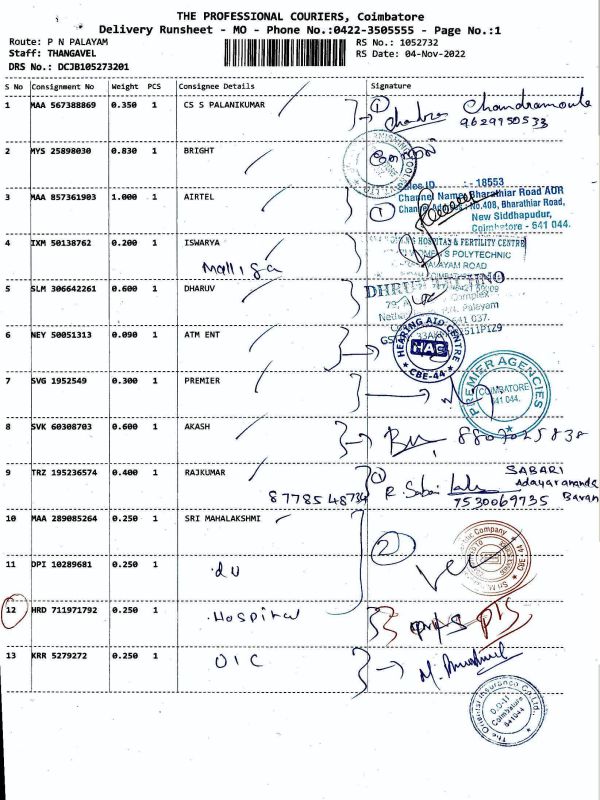 THE PROFESSIONAL COURIERS, Coimbatore
Delivery Runsheet - MO - Phone No.:0422-3505555 - Page No.:1
Route: P N PALAYAM
Staff: THANGAVEL
DRS No.: DCJB105273201
RS No.: 1052732
RS Date: 04-Nov-2022
S No Consignment No Weight PCS Consignee Details Signature
1 MAA 567388869 0.350 1 CS S PALANIKUMAR
① Chandramoule
9629950533
2 MYS 25898030 0.830 1 BRIGHT
3 MAA 857361903 1.000 1 AIRTEL
①
ID : - 18553
Channel Name: Bharathiar Road AOR
No.408, Bharathiar Road,
New Siddhapudur,
Coimbatore - 641 044.
4 IXM 50138762 0.200 1 ISWARYA
Malliga
HOSPITAL & FERTILITY CENTRE
POLYTECHNIC
ROAD
5 SLM 306642261 0.600 1 DHARUV
Complex
Palayam
641 037.
6 NEY 50051313 0.090 1 ATM ENT
HEARING AID CENTRE
HAC
CBE-44
7 SVG 1952549 0.300 1 PREMIER
PREMIER AGENCIES
COIMBATORE
641 044.
8 SVK 60308703 0.600 1 AKASH
8807025838
9 TRZ 195236574 0.400 1 RAJKUMAR
8778548734
① R. Sabai
7530069735
SABARI
Adayarananda
Bavan
10 MAA 289085264 0.250 1 SRI MAHALAKSHMI
②
11 DPI 10289681 0.250 1 du
12 HRD 711971792 0.250 1 Hospital
13 KRR 5279272 0.250 1 OIC
The Oriental Insurance Co. Ltd.,
D.O-II
Coimbatore
641044